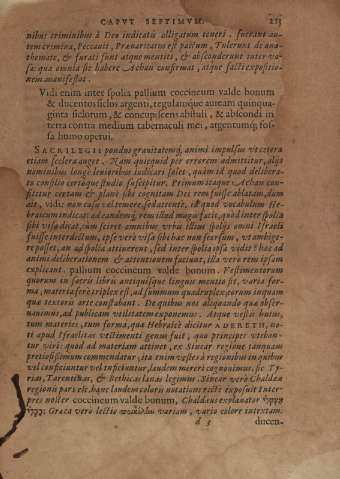 CAPVT SEPTIMVM. 213
nibus criminibus à Deo indicatis alligatum teneri, fuerint au-
tem crimina, Peccauit, Præuaricatus est pactum, Tulerunt de ana-
themate, & furati sunt atque mentiti, & absconderunt inter va-
sa: quæ omnia sic habere Achan confirmat, atque facti expositio-
nem manifestat.
Vidi enim inter spolia pallium coccineum valde bonum
& ducentos siclos argenti, regulamque auream quinqua-
ginta siclorum, & concupiscens abstuli, & abscondi in
terra contra medium tabernaculi mei, argentumque fos-
sa humo operui.
SACRILEGII pondus grauitatemque, animi impulsus vt cetera
etiam scelera auget. Nam quicquid per errorem admittitur, aliis
nominibus longè lenioribus iudicari solet, quàm id quod delibera-
to consilio certóque studio suscipitur. Primum itaque Achan con-
fitetur certam & planè sibi cognitam Dei rem fuisse ablatam, dum
ait, vidi: non casu vel temere, sed attentè, id quod vocabulum He-
braicum indicat ad eandemque rem illud magis facit, quod inter spolia
sibi visa dicat, cum sciret omnibus vrbis illius spoliis omni Israeli
fuisse interdictum, ipse verò visa sibi hæc non seorsum, vt ambige-
re posset, an ad spolia attinerent, sed inter spolia ipsa vidit: hæc ad
animi deliberationem & attentionem faciunt, illa verò rem ipsam
explicant. pallium coccineum valde bonum. Vestimentorum
quorum in sacris libris antiquisque linguis mentio fit, varia for-
ma, materia ferè triplex est, ad summum quadruplex, eorum inquam
quæ textoris arte constabant. De quibus nos aliquando quæ obser-
uauimus, ad publicam vtilitatem exponemus. Atque vestis huius,
tum materies, tum forma, quæ Hebraicè dicitur ADERETH, no-
ta apud Israelitas vestimenti genus fuit, quo principes vteban-
tur viri: quod ad materiam attinet, ex Sincar regione tanquam
pretiosissimum commendatur, ita enim vestes à regionibus in quibus
vel conficiuntur vel inficiuntur, laudem mereri cognouimus. sic Ty-
rias, Tarentinas, & Bethicas lanas legimus. Sincar verò Chaldææ
regionis pars est, hanc laudem coloris notatione rectè exposuit Inter-
pres noster coccineum valde bonum, Chaldæus explanator
Græca verò lectio ποικίλην variam, vario colore intextam.
d 3 ducen-